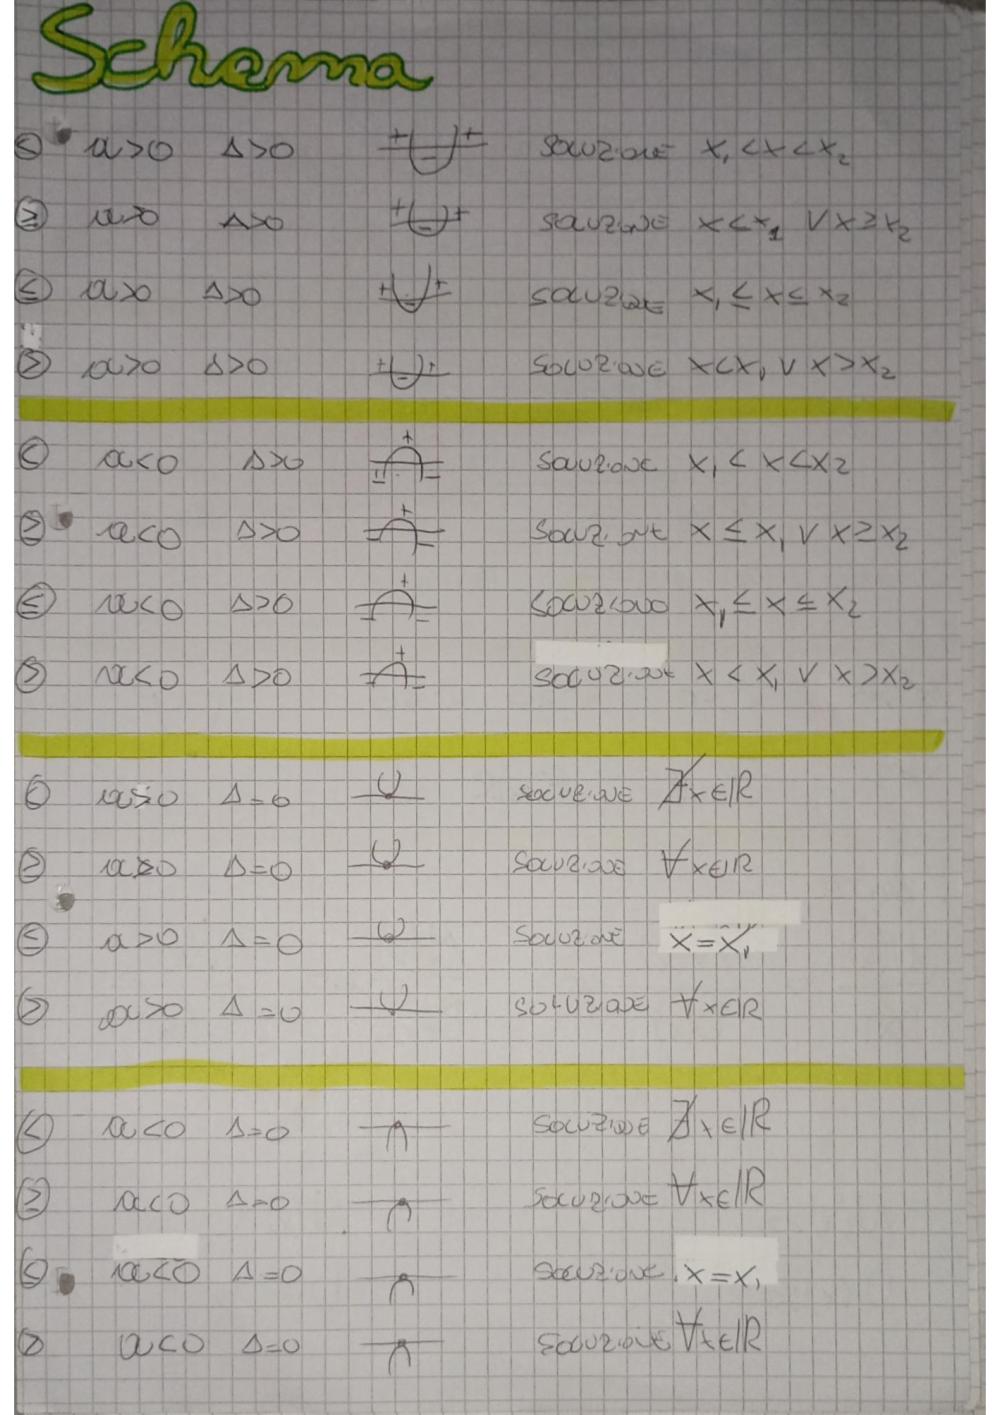 Schema
< a>0 Δ>0 + - + SOLUZIONE x₁<x<x₂
≥ a>0 Δ>0 + - + SOLUZIONE x<x₁ ∨ x≥x₂
≤ a>0 Δ>0 + - + SOLUZIONE x₁≤x≤x₂
> a>0 Δ>0 + - + SOLUZIONE x<x₁ ∨ x>x₂
< a<0 Δ>0 - + - SOLUZIONE x₁<x<x₂
≥ a<0 Δ>0 - + - SOLUZIONE x≤x₁ ∨ x≥x₂
≤ a<0 Δ>0 - + - SOLUZIONE x₁≤x≤x₂
> a<0 Δ>0 - + - SOLUZIONE x<x₁ ∨ x>x₂
< a>0 Δ=0 SOLUZIONE ∄x∈ℝ
≥ a>0 Δ=0 SOLUZIONE ∀x∈ℝ
≤ a>0 Δ=0 SOLUZIONE x=x₁
> a>0 Δ=0 SOLUZIONE ∀x∈ℝ
< a<0 Δ=0 SOLUZIONE ∄x∈ℝ
≥ a<0 Δ=0 SOLUZIONE ∀x∈ℝ
≤ a<0 Δ=0 SOLUZIONE x=x₁
> a<0 Δ=0 SOLUZIONE ∀x∈ℝ